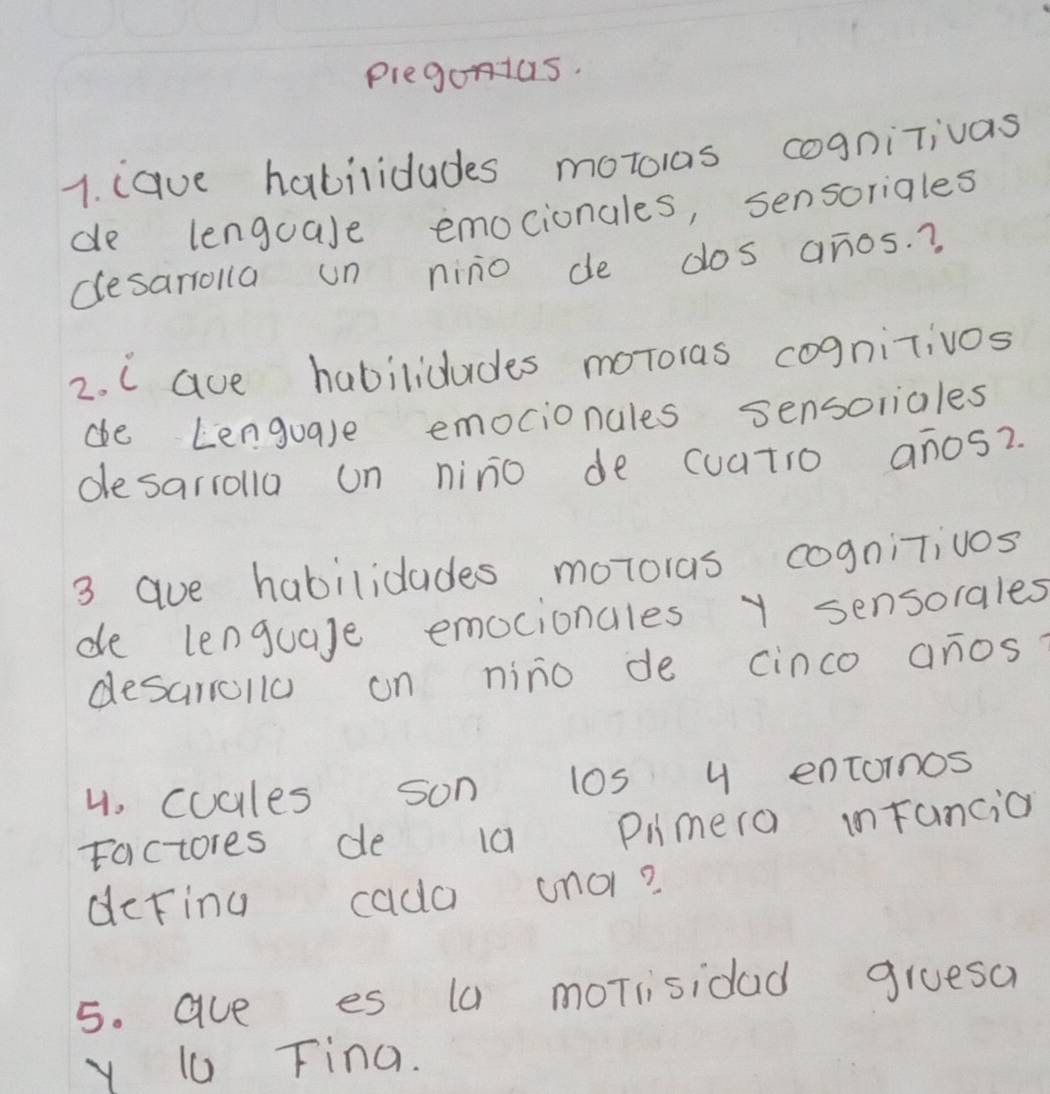 Preguntas.
1. ¿que habilidades motoras cognitivas
de lenguaje emocionales, sensoriales
desarrolla un niño de dos años.?
2. ¿ que habilidades motoras cognitivos
de Lenguaje emocionales sensoriales
desarrolla un niño de cuatro años?.
3 que habilidades motoras cognitivos
de lenguaje emocionales y sensorales
desarrolla un niño de cinco años?
4. cuales son los 4 entornos
factores de la Primera infancia
defina cada una?
5. que es la motrisidad gruesa
y la Fina.